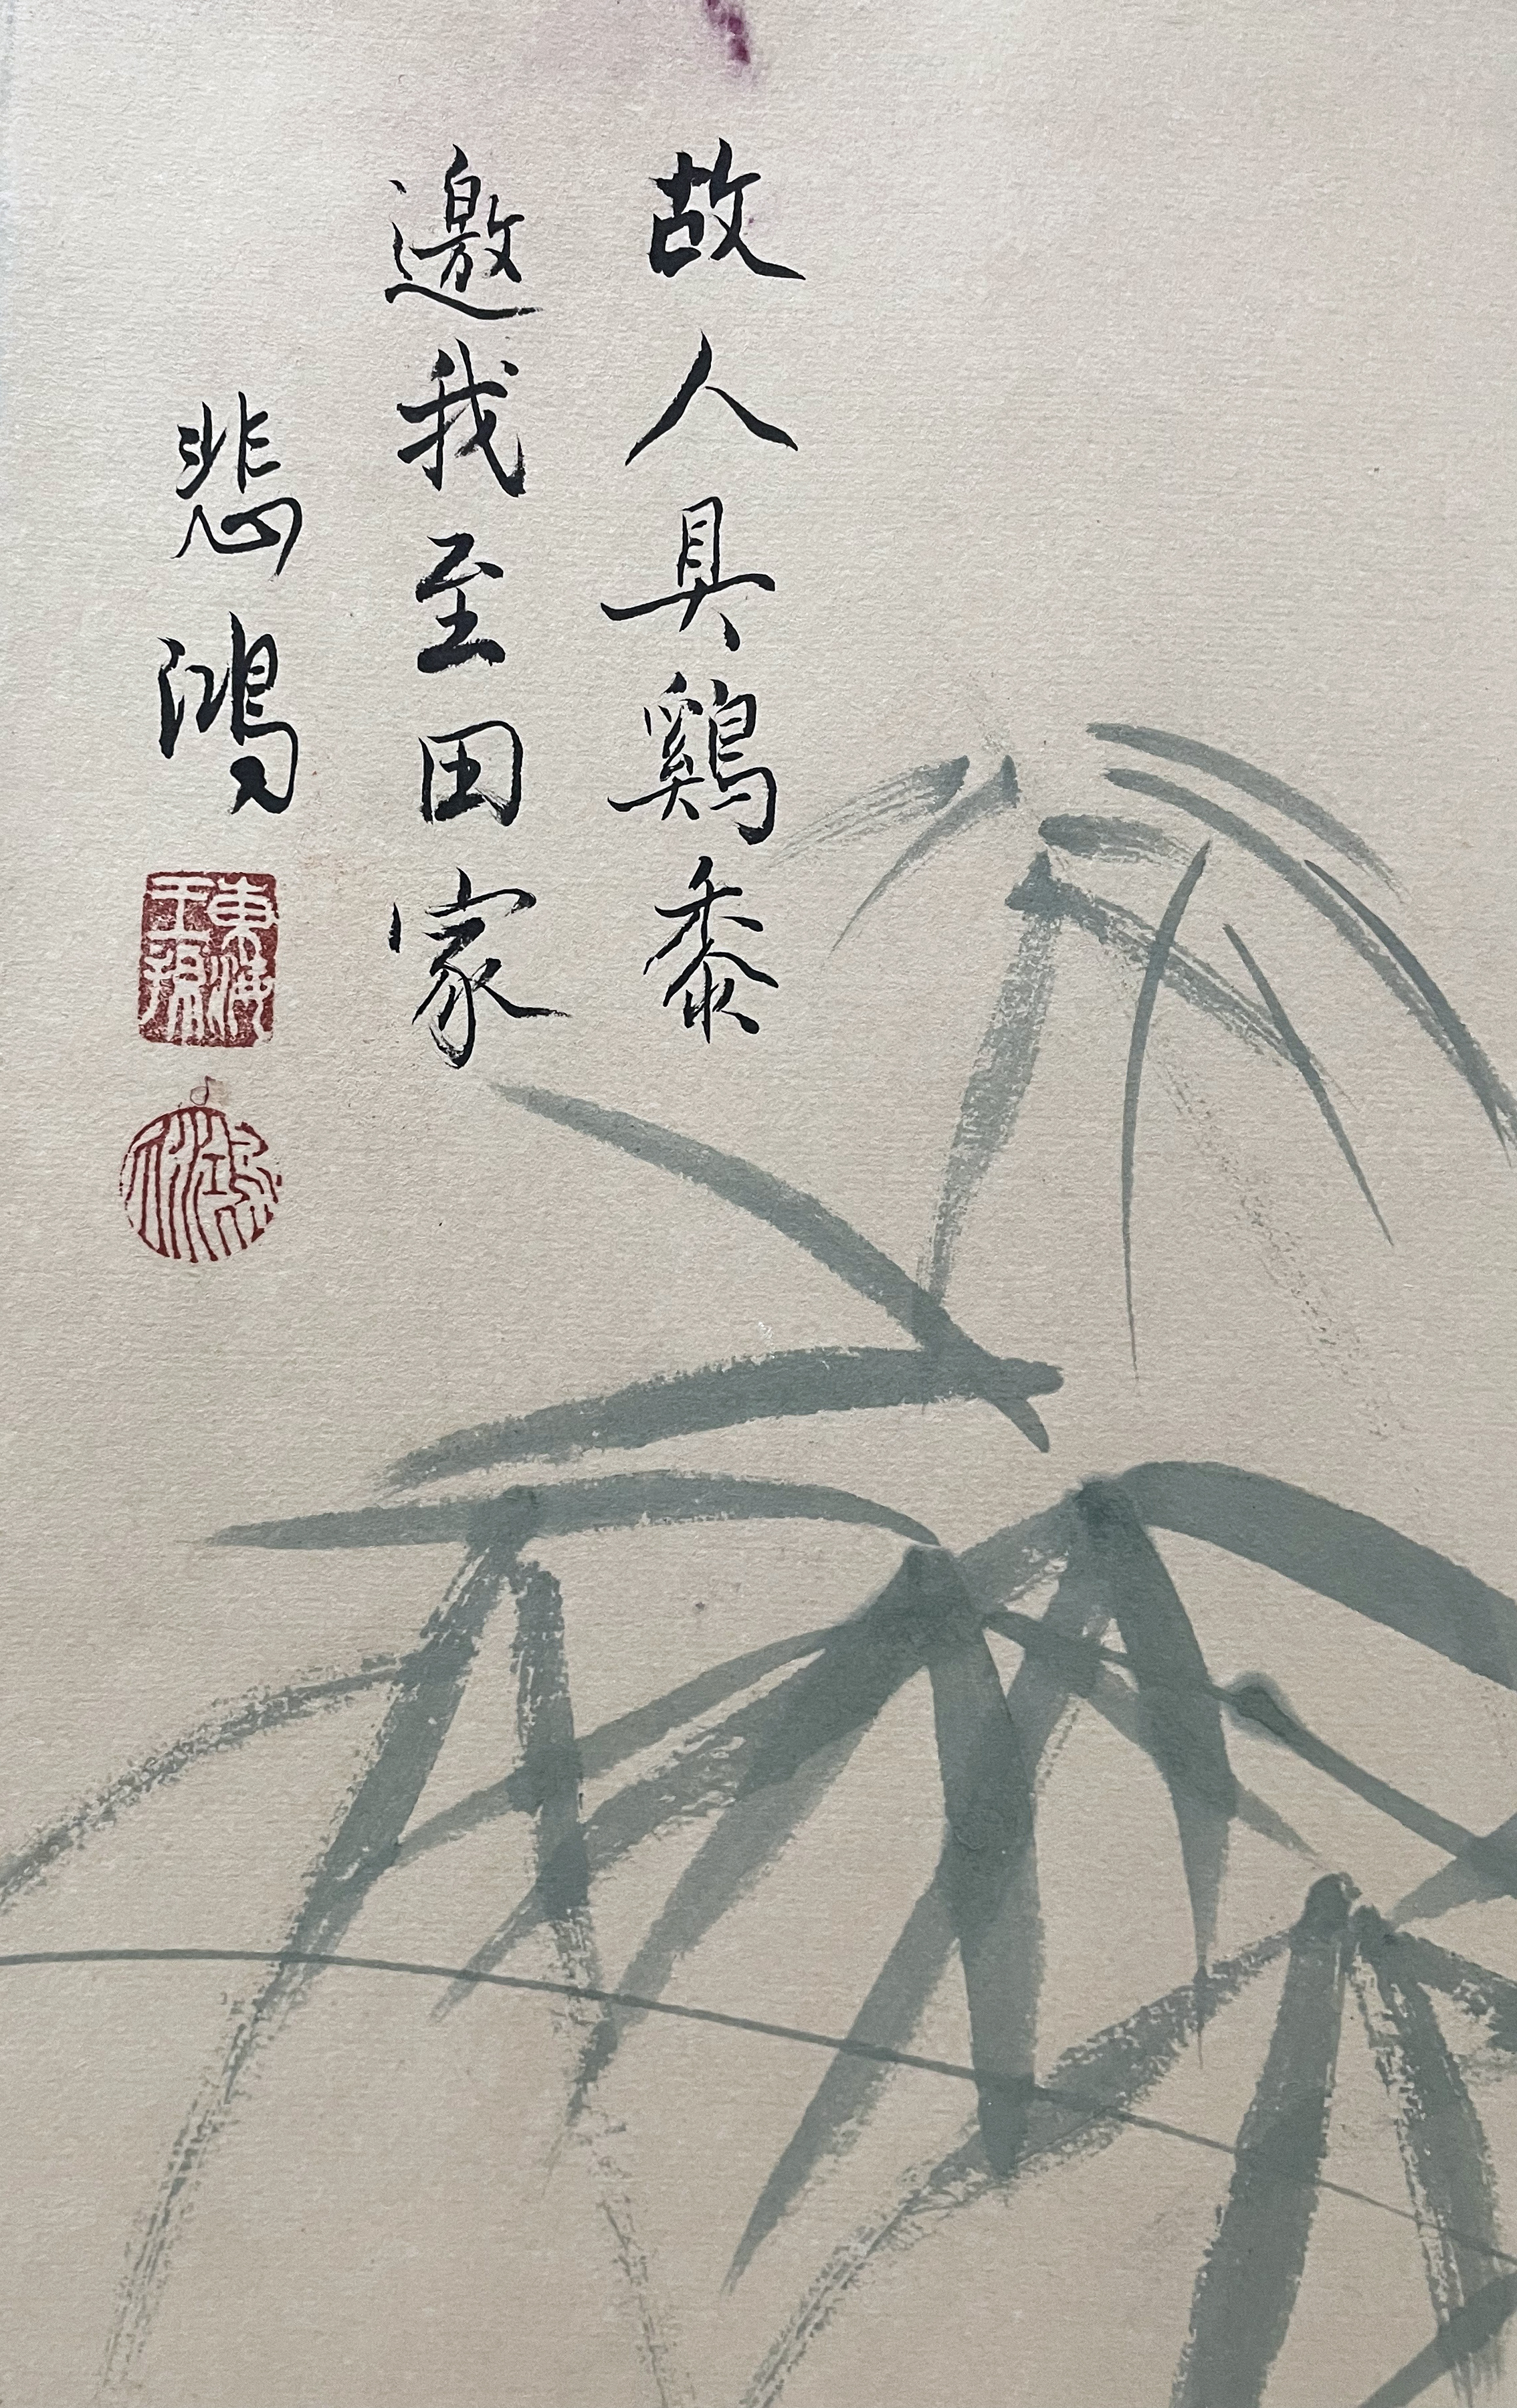 故人具鷄黍
邀我至田家
悲鴻
東海王孫